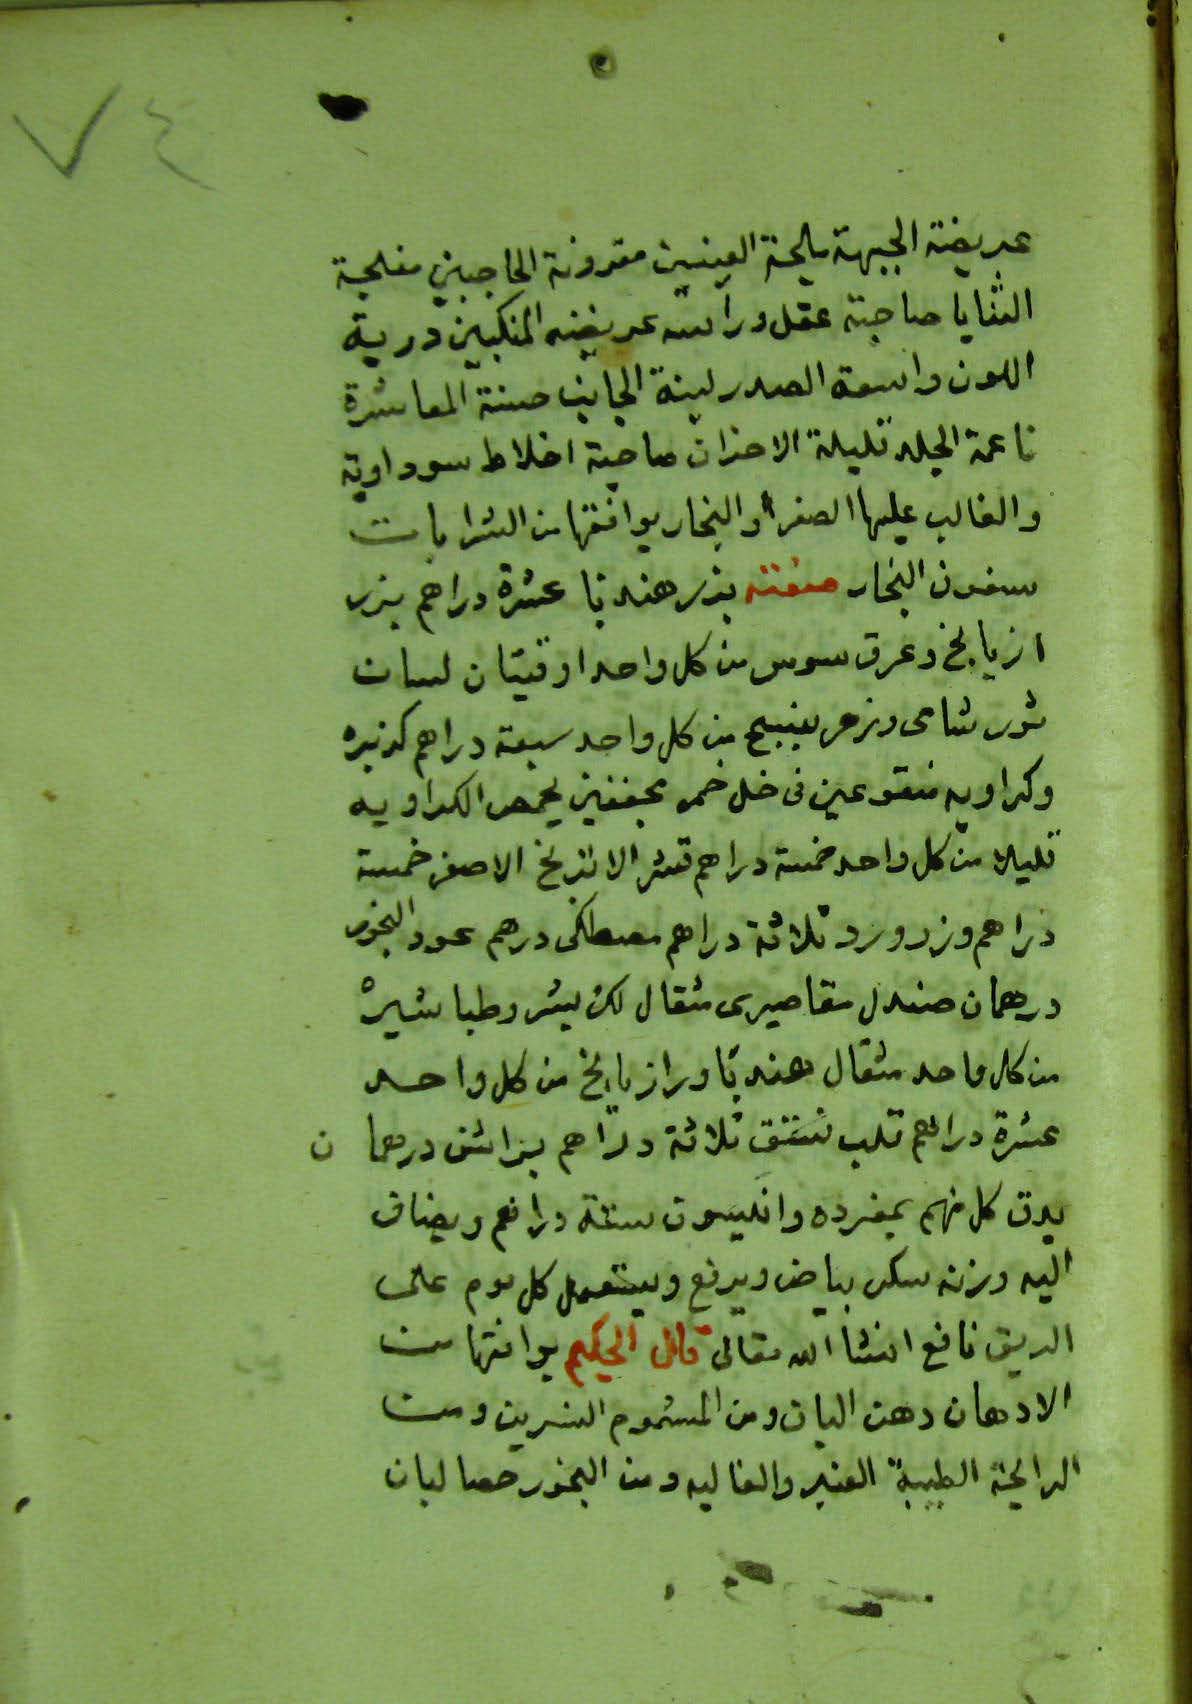 ٧٤
عريضة الجبهة مليحة العينين مقرونة الحاجبين مفلجة
الثنايا صاحبة عقل وراسه عريضه المنكبين درية
اللون واسعة الصدر لينة الجانب حسنة المعاشرة
ناعمة الجلد قليلة الاحزان صاحبة اخلاط سوداوية
والغالب عليها الصفرا والبخار يوافقها من الشرابات
سفوف البخار صفته بزر هندبا عشرة دراهم بزر
ازيانج وعرق سوس من كل واحد اوقيتان لسان
ثور شامى وزهر بنفسج من كل واحد سبعة دراهم كزبره
وكراويه منقوعين فى خل خمر مجففين يحمص الكراويه
قليلا من كل واحد خمسة دراهم قشر الاترنج الاصفر خمسة
دراهم وزر ورد ثلاثة دراهم مصطكى درهم عود البخور
درهمان صندل مقاصيرى مثقال لك بسر وطباشير
من كل واحد مثقال هندبا ورازيانج من كل واحد
عشرة دراهم قلب فستق ثلاثة دراهم درهمان
يدق كل منهم بمفرده وانيسون ستة دراهم ويضاف
اليه وزنه سكر بياض ويرفع ويستعمل كل يوم على
الريق نافع انشا الله تعالى قال الحكيم يوافقها من
الادهان دهن البان ومن المشموم النسرين ومن
الرايحة الطيبة العنبر والغاليه ومن البخور حصا لبان